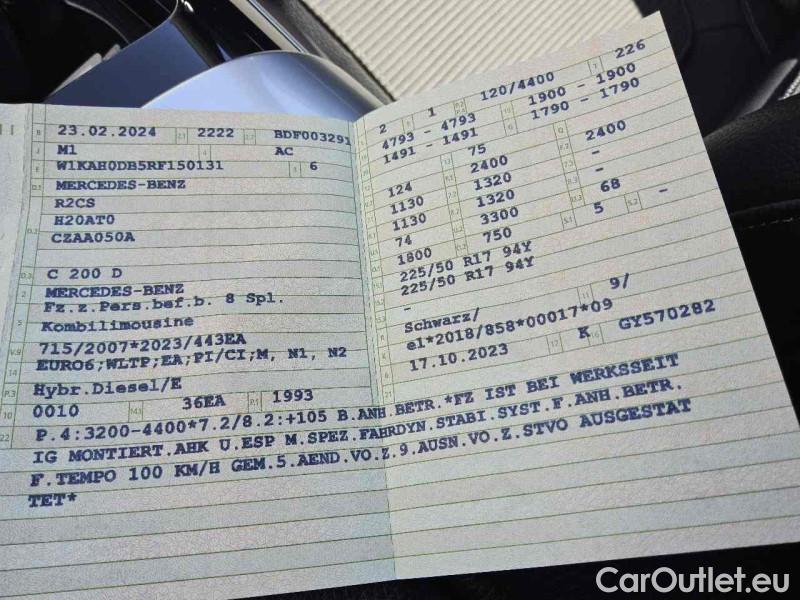 B 23.02.2024 2.1 2222 2.2 BDF003291
J M1 4 AC
E W1KAH0DB5RF150131 3 6
D.1 MERCEDES-BENZ
R2CS
D.2 H20AT0
CZAA050A
D.3 C 200 D
2 MERCEDES-BENZ
5 Fz.z.Pers.bef.b. 8 Spl.
Kombilimousine
V.9 715/2007*2023/443EA
14 EURO6;WLTP;EA;PI/CI;M, N1, N2
P.3 Hybr.Diesel/E
10 0010 14.1 36EA P.1 1993
22 P.4:3200-4400*7.2/8.2:+105 B.ANH.BETR.*FZ IST BEI WERKSSEIT
IG MONTIERT.AHK U.ESP M.SPEZ.FAHRDYN.STABI.SYST.F.ANH.BETR.
F.TEMPO 100 KM/H GEM.5.AEND.VO.Z.9.AUSN.VO.Z.STVO AUSGESTAT
TET*
2 1 120/4400 T 226
4793 - 4793 1900 - 1900
1491 - 1491 1790 - 1790
75
124 2400 2400
1130 1320 -
1130 1320 -
74 3300 68
1800 750 S.1 5 S.2 -
225/50 R17 94Y
225/50 R17 94Y
-
Schwarz/ 11 9/
e1*2018/858*00017*09
6 17.10.2023 17 K 16 GY570282
21
CarOutlet.eu